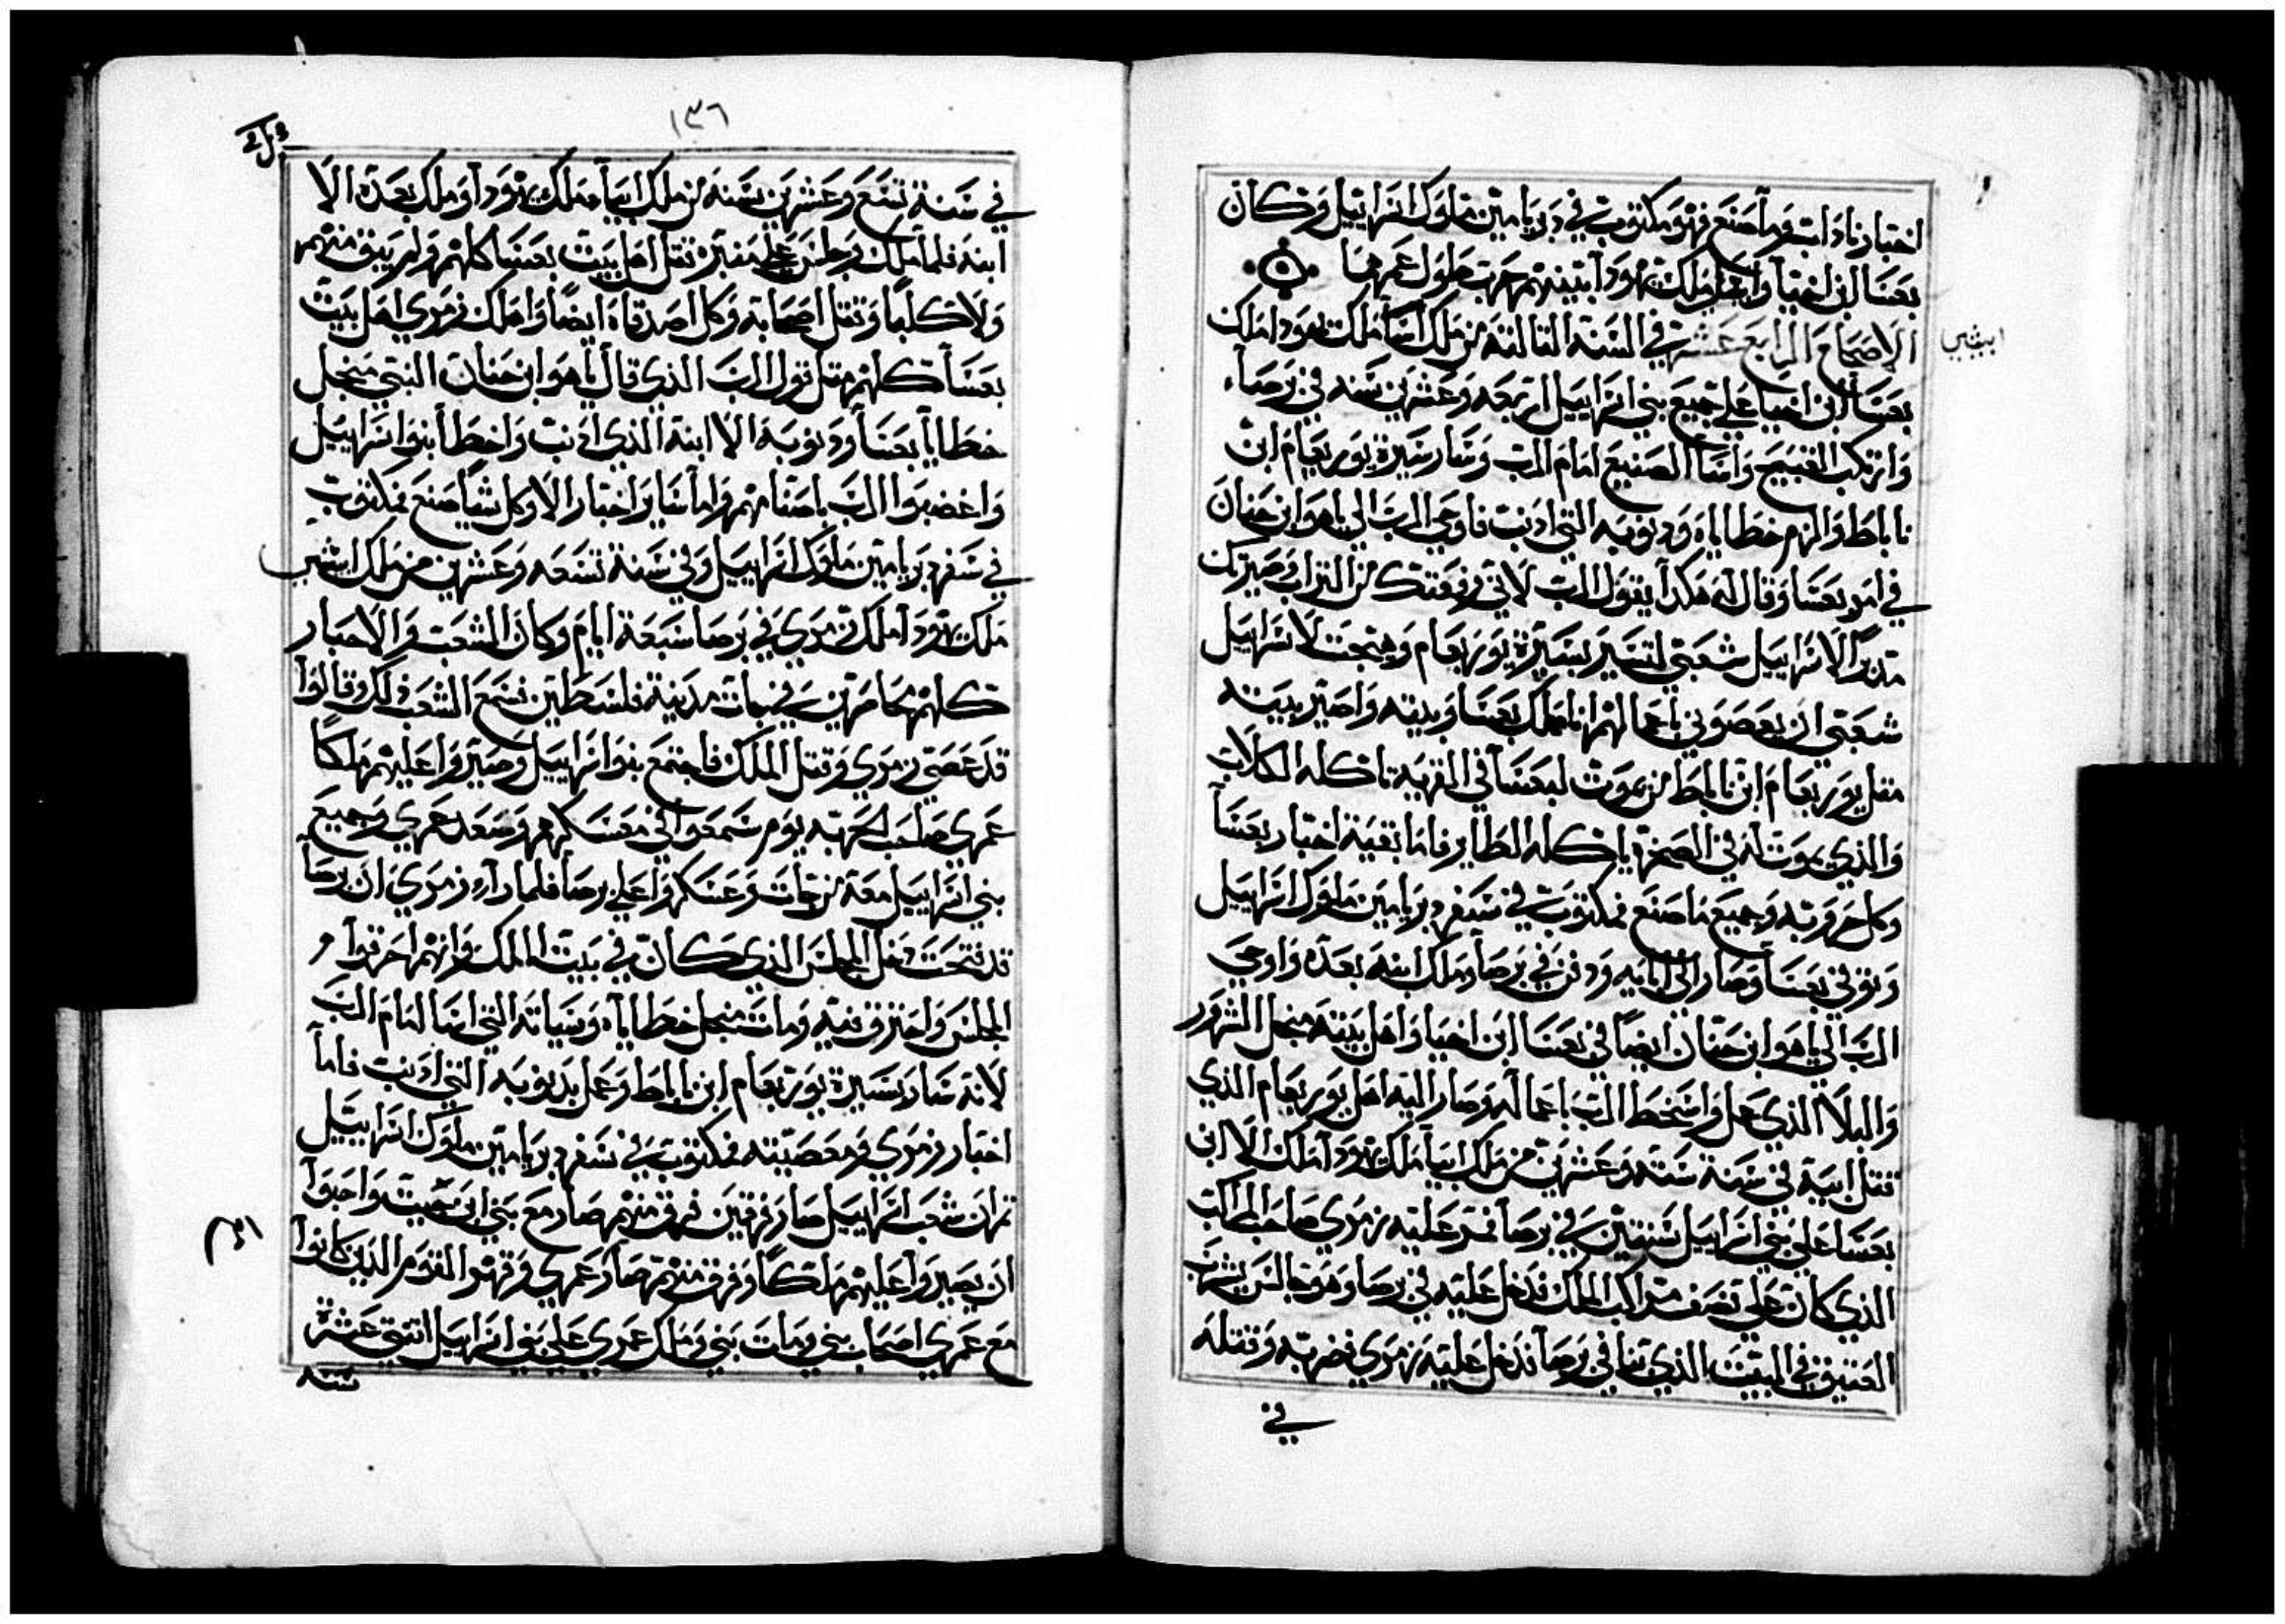 اختبار ناداب وما صنع فهو مكتوب في دبريامين ملوك اسراييل وكان
بعشا ابن اخيا وابيا ملك يهودا بينهم حرب طول عمرهما
ابيشي
الاصحاح الرابع عشر في السنة التالتة من ملك اسا ملك يهودا ملك
بعشا ابن اخيا على جميع بني اسراييل اربعه وعشرين سنه في برصا
وارتكب القبيح واسا الصنيع امام الرب وسار سيرة يوربعام ابن
ناباط والزم خطاياه ودنوبه التي ادنب فاوحي الرب الي ياهو ابن حنان
في امر بعشا وقال له هكدا يقول الرب لاني رفعتك من التراب وصيرتك
مدبرًا لاسراييل شعبي لتسير بسيرة يوربعام وهيجت لاسراييل
شعبي ان يعصوني باعمالهم انا مهلك بعشا وبيته واصير بيته
متل يوربعام ابن ناباط من يموت لبعشا في القريه تاكله الكلاب
والذي يموت له في الصحرة ياكله الطاير فاما بقية اختبار بعشا
وكل حروبه وجميع ما صنع فمكتوب في سفر دبريامين ملوك اسراييل
وتوفي بعشا وصار الي ابايه ودفن في برصا وملك ابنه بعده واوحي
الرب الي ياهو ابن حنان ايضًا في بعشا ابن اخيا واهل بيته منجل الشرور
والبلا الذي عمل واسخط الرب باعماله وصار اليه اهل يوربعام الذي
قتل ابيه في سنة سته وعشرين من ملك ابيا ملك يهودا ملك الا ابن
بعشا على بني اسراييل سنتين في برصا فمرد عليه زمري صاحب المراكب
الذي كان على نصف مراكب الملك فدخل عليه في برصا وهو جالس يشرب
العتيق في البيت الذي بنا في برصا فدخل عليه زمري فضربه وقتله
في
١٣٦
في سنة تسع وعشرين سنه من ملك ابيا ملك يهودا وملك بعده الا
ابنه فلما ملك وجلس على منبره قتل اهل بيت بعشا كلهم ولم يبق منهم
ولا كلبًا وقتل اصحابه وكل اصدقاه ايضًا واهلك زمري اهل بيت
بعشا كلهم متل قول الرب الذي قال ياهو ابن حنان النبي منجل
خطايا بعشا ودنوبه الا ابنه الذي ادنب واخطا بنوا اسراييل
واغضبوا الرب باصنامهم واما ساير اختبار الا وكل شيا صنع فمكتوب
في سفر دبريامين ملوك اسراييل وفي سنة تسعه وعشرين من ملك ابيشي
ملك يهودا ملك زمري في برصا سبعة ايام وكان الشعب والاحبار
كلهم محاصرين في جات مدينة فلسطين فسمع الشعب ذلك وقالوا
قد عصي زمري وقتل الملك فاجتمع بنوا اسراييل وصيروا عليهم ملكًا
عمري صاحب الحربه يوم سمعوا في معسكرهم وصعد عمري وجميع
بني اسراييل معه من جات وعسكروا على برصا فلما راء زمري ان برصا
قد فتحت دخل المجلس الذي كان في بيت الملك وانهم احرقوا
المجلس واحترق فيه ومات منجل خطاياه وسياته التي اسا امام الرب
لانه سار بسيرة يوربعام ابن ناباط وعمل بدنوبه التي ادنب فاما
اختبار زمري ومعصيته فمكتوب في سفر دبريامين ملوك اسراييل
تم ان شعب اسراييل صار فرقتين فرق منهم صار مع بني ابن جيت واحبوا
ان يصيروا عليهم ملكًا وفرق منهم صار عمري وقهر القوم الذين كانوا
مع عمري اصحاب بني ومات بني وملك عمري على بنوا اسراييل اتني عشرة
سنه